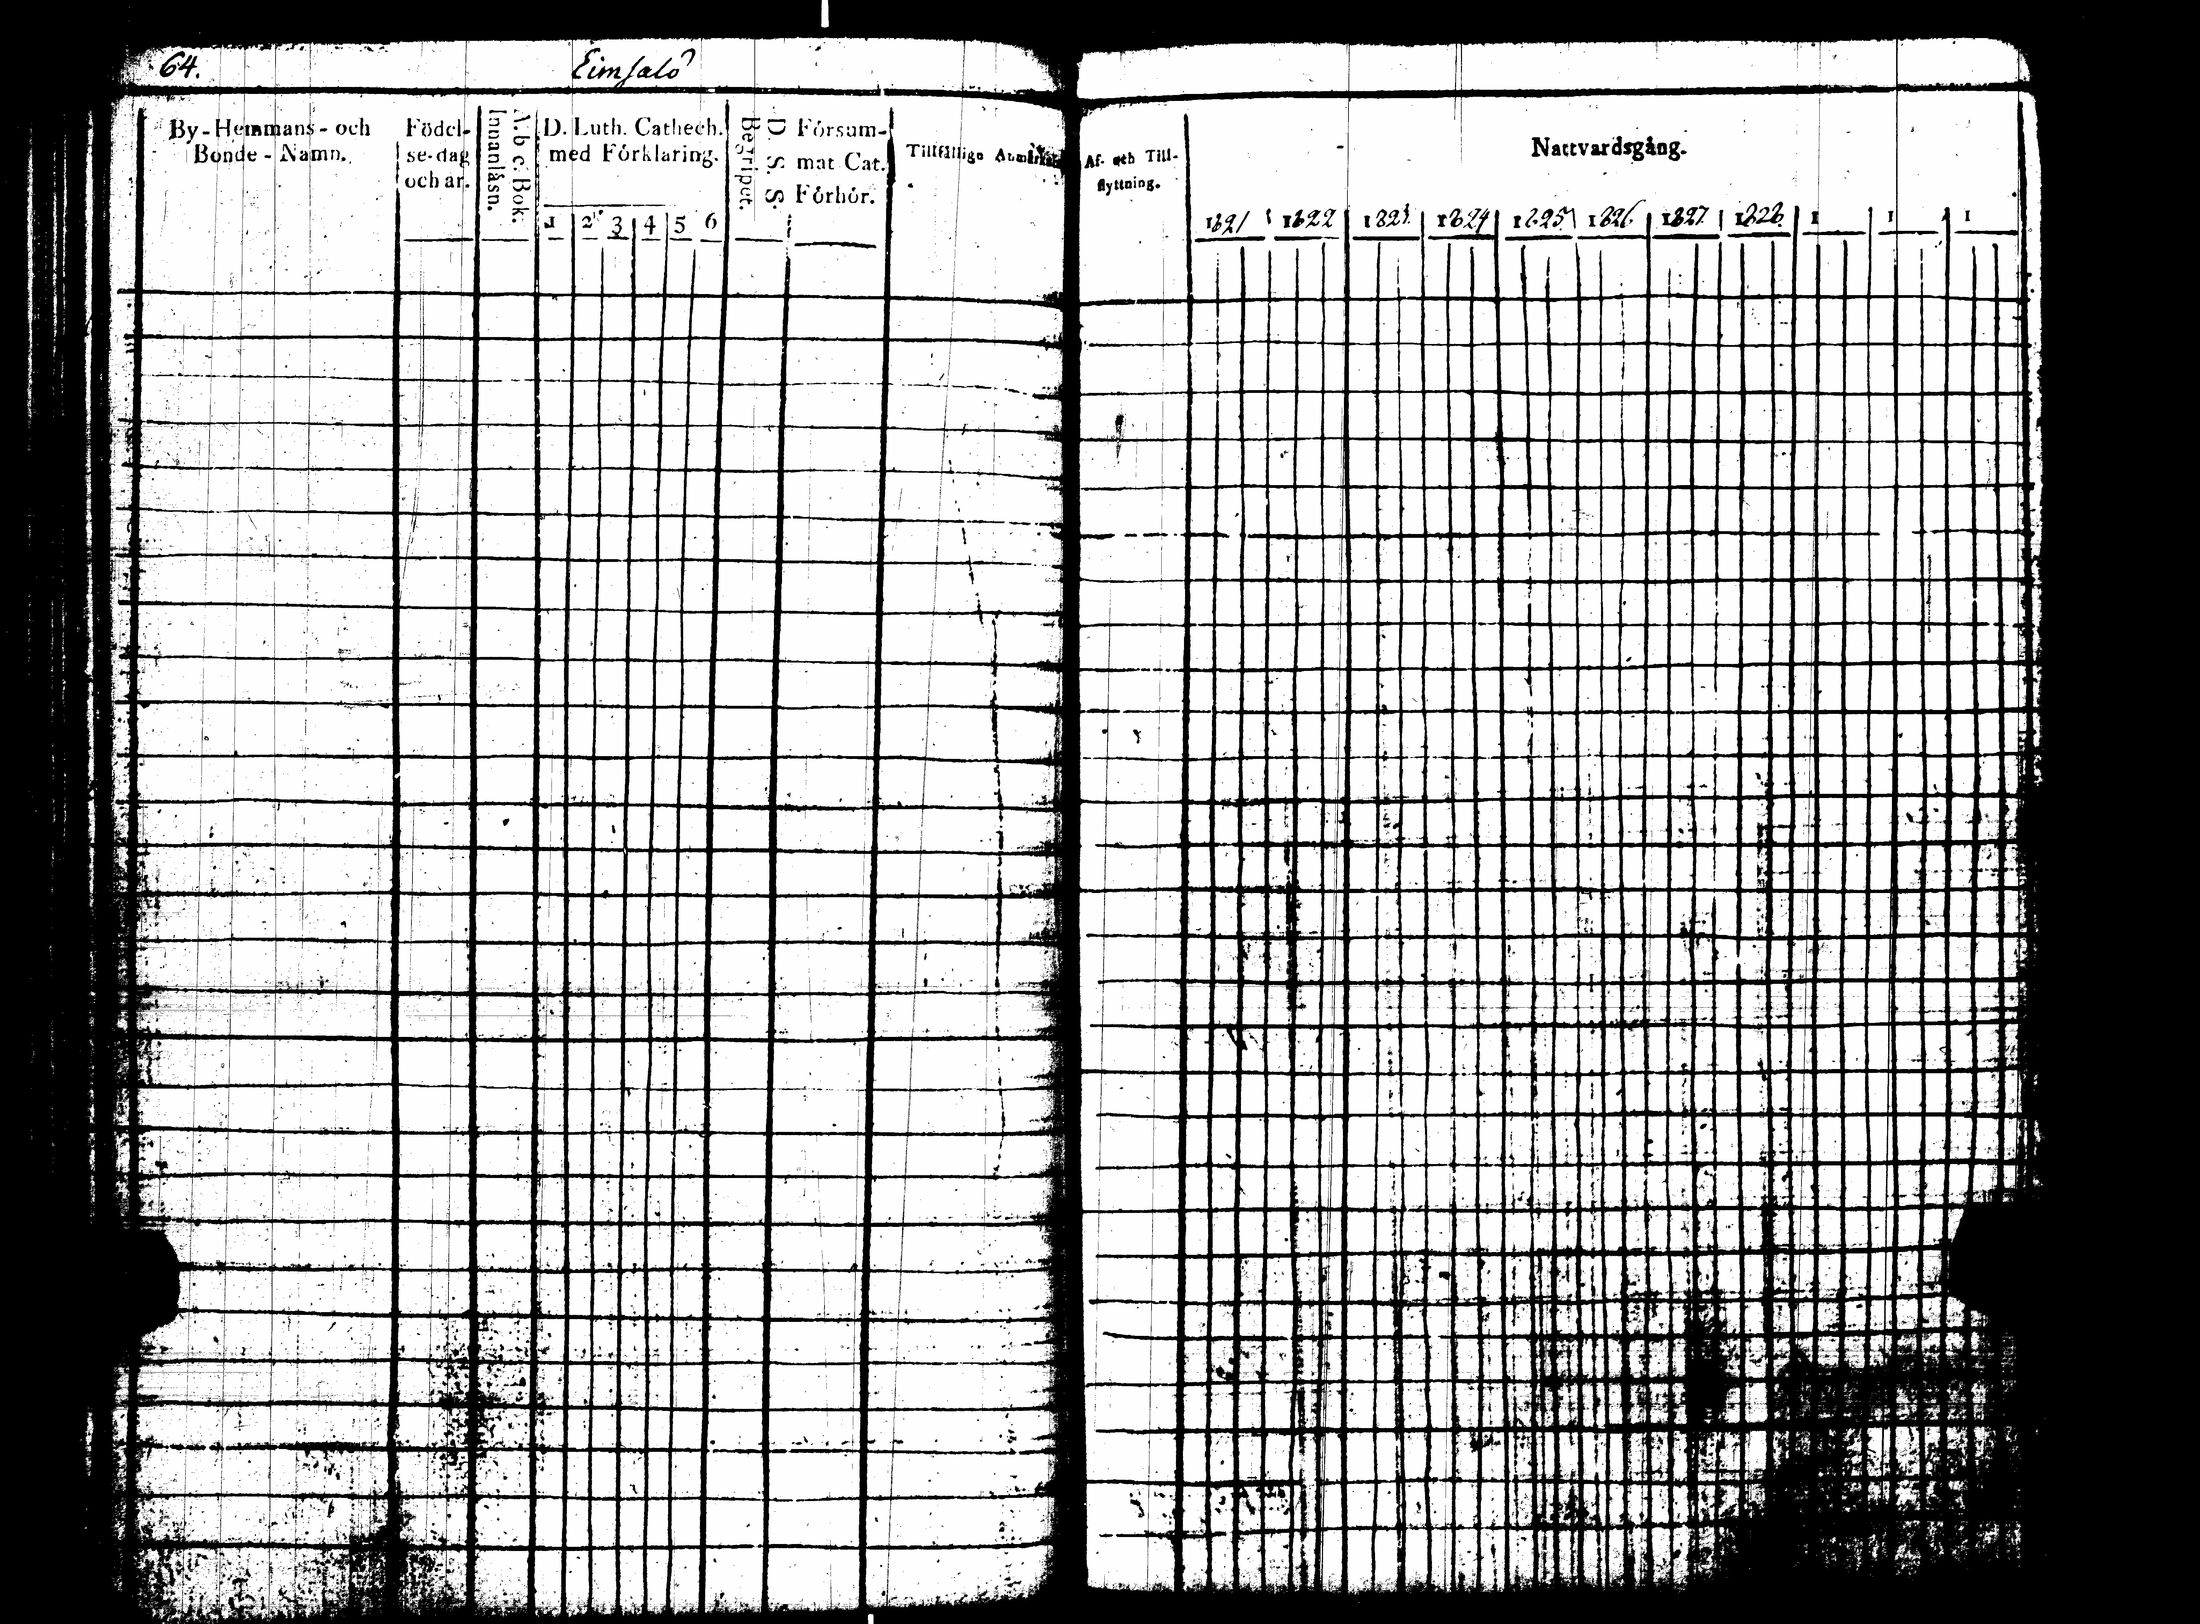 64.
Eimsalö
By-Hemmans- och
Bonde-Namn.
Födel-
se-dag
och år.
A. b c. Bok.
Innanläsn.
D. Luth. Cathech.
med Förklaring.
1 2 3 4 5 6
D. S. S.
Begripet.
Försum-
mat Cat.
Förhör.
Tillfällige Anmärkn.
Af- och Till-
flyttning.
Nattvardsgång.
1821 1822 1823 1824 1825 1826 1827 1828 1 1 1